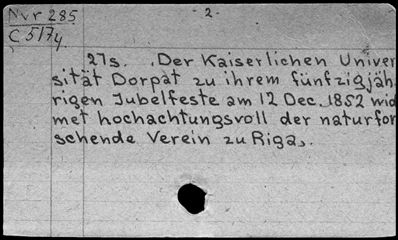 Nvr 285
- 2 -
C 5174
27s. Der Kaiserlichen Univer
sität Dorpat zu ihrem fünfzigjäh
rigen Jubelfeste am 12 Dec. 1852 wid
met hochachtungsvoll der naturfor
schende Verein zu Riga.